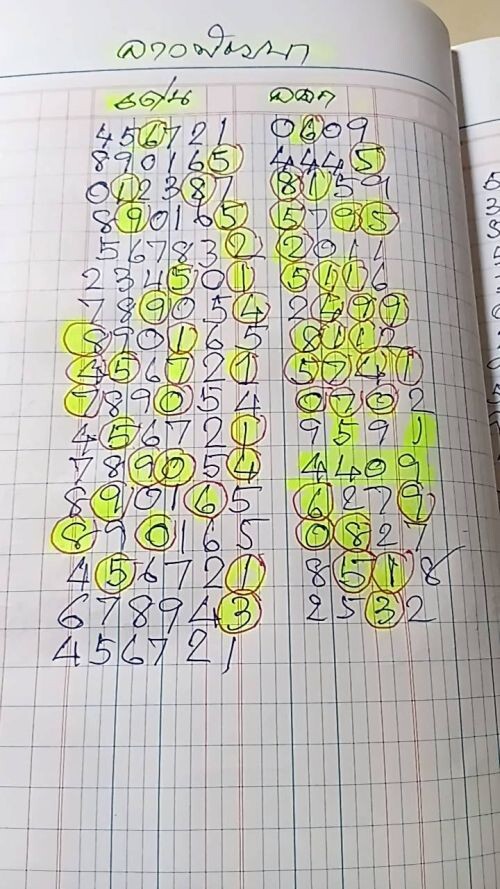 ลาวพัฒนา
เด่น ออก
456721 0609
890165 4445
012387 8159
890165 5795
567832 2011
234501 5116
789054 2499
890165 8112
456721 5741
789054 0702
456721 9591
789054 4409
890165 6279
890165 0827
456721 8518
678943 2532
456721